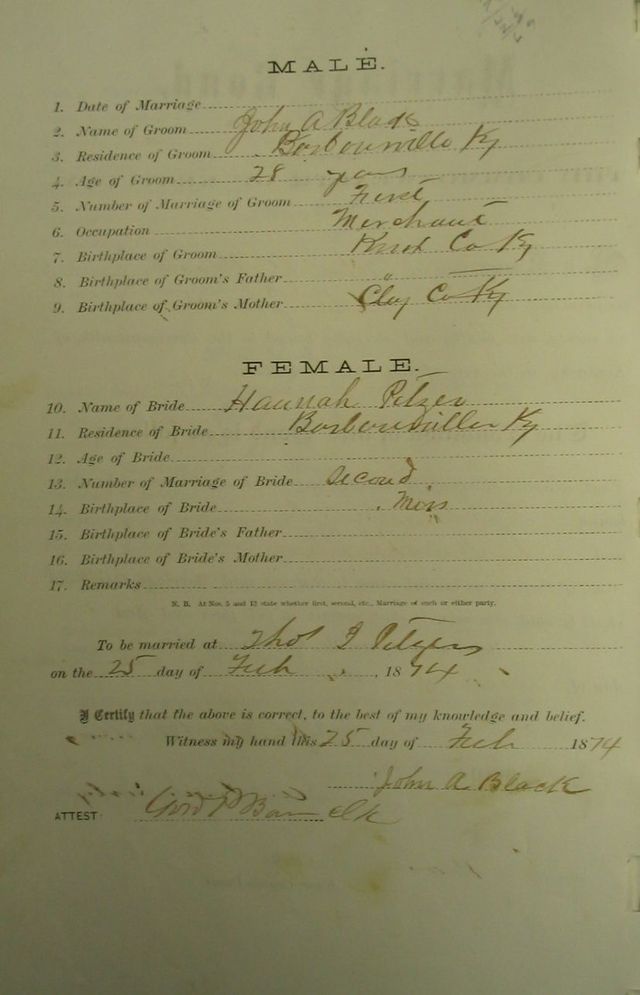 MALE.
1. Date of Marriage
2. Name of Groom John A Black
3. Residence of Groom Barbourville Ky
4. Age of Groom 28 years
5. Number of Marriage of Groom First
6. Occupation Merchant
7. Birthplace of Groom Knox Co Ky
8. Birthplace of Groom's Father "
9. Birthplace of Groom's Mother Clay Co Ky
FEMALE.
10. Name of Bride Hannah Pitzer
11. Residence of Bride Barbourville Ky
12. Age of Bride
13. Number of Marriage of Bride second
14. Birthplace of Bride
15. Birthplace of Bride's Father
16. Birthplace of Bride's Mother
17. Remarks
N. B. At Nos. 5 and 13 state whether first, second, etc., Marriage of each or either party.
To be married at Thos J Pitzers
on the 25 day of Feb, 1874
I Certify that the above is correct, to the best of my knowledge and belief.
Witness my hand this 25 day of Feb 1874
John A Black
ATTEST: Clk